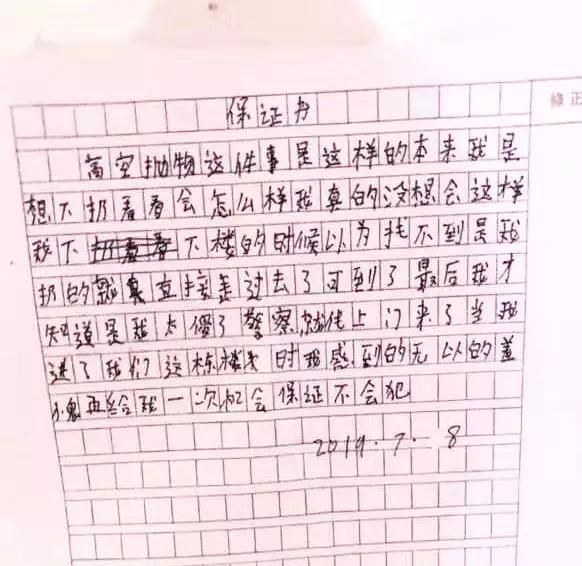 保证书
高空抛物这件事是这样的本来我是
想下扔看看会怎么样我真的没想会这样
我下扔看看下楼的时候以为找不到是我
扔的就直接走过去了可到了最后我才
知道是我太傻了警察就找上门来了当我
进了我们这栋楼 时我感到的无以的羞
愧再给我一次机会保证不会犯
2019.7.8
修正